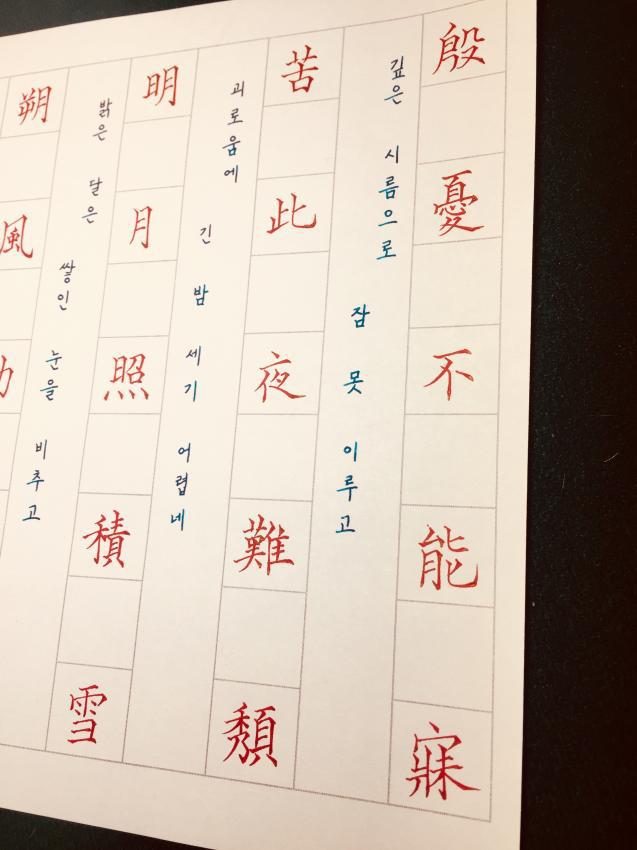 殷憂不能寐
깊은 시름으로 잠 못 이루고
苦此夜難頽
괴로움에 긴 밤 세기 어렵네
明月照積雪
밝은 달은 쌓인 눈을 비추고
朔風